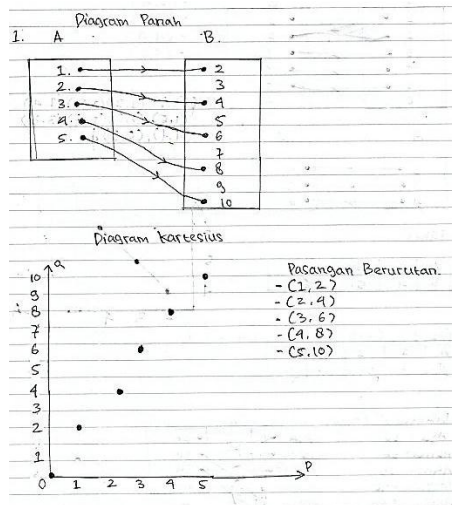 Diagram Panah
1. A B.
1. 2
2. 3
3. 4
4. 5
5. 6
7
8
9
10
Diagram Kartesius
Q
10
9
8
7
6
5
4
3
2
1
0 1 2 3 4 5
P
Pasangan Berurutan.
- (1, 2)
- (2, 4)
- (3, 6)
- (4, 8)
- (5, 10)